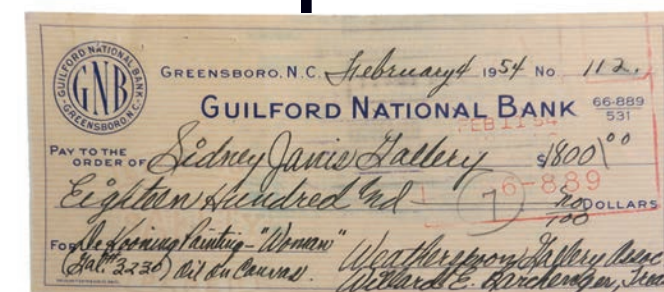 GUILFORD NATIONAL BANK
GNB
GREENSBORO, N.C.
GREENSBORO, N.C. February 4 1954 No. 112.
GUILFORD NATIONAL BANK 66-889
531
FEB 11 54
PAY TO THE
ORDER OF Sidney Janis Gallery $1800 00
6-889
Eighteen Hundred and no DOLLARS
100
7
For De Kooning Painting - "Woman"
(Gal. # 3230) Oil on Canvas.
Weatherspoon Gallery Assoc
Willard E. Treas